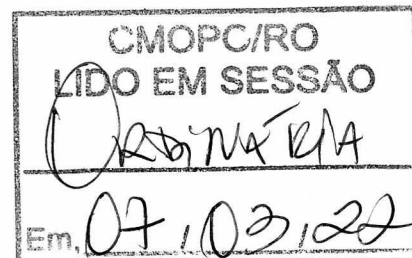 CMOPC/RO
LIDO EM SESSÃO
ORDINÁRIA
Em, 07, 03, 22